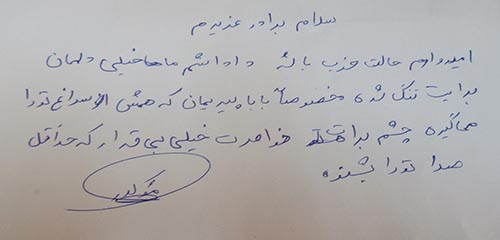 سلام برادر عزیزم
امیدوارم حالت خوب باشه داداشم ما خیلی دلمان
برایت تنگ شده مخصوصاً بابا پیریمان که همش سراغ تورا
میگیره چشم براته خواهرت خیلی بی قرار که حداقل
صدا تورا بشنوه